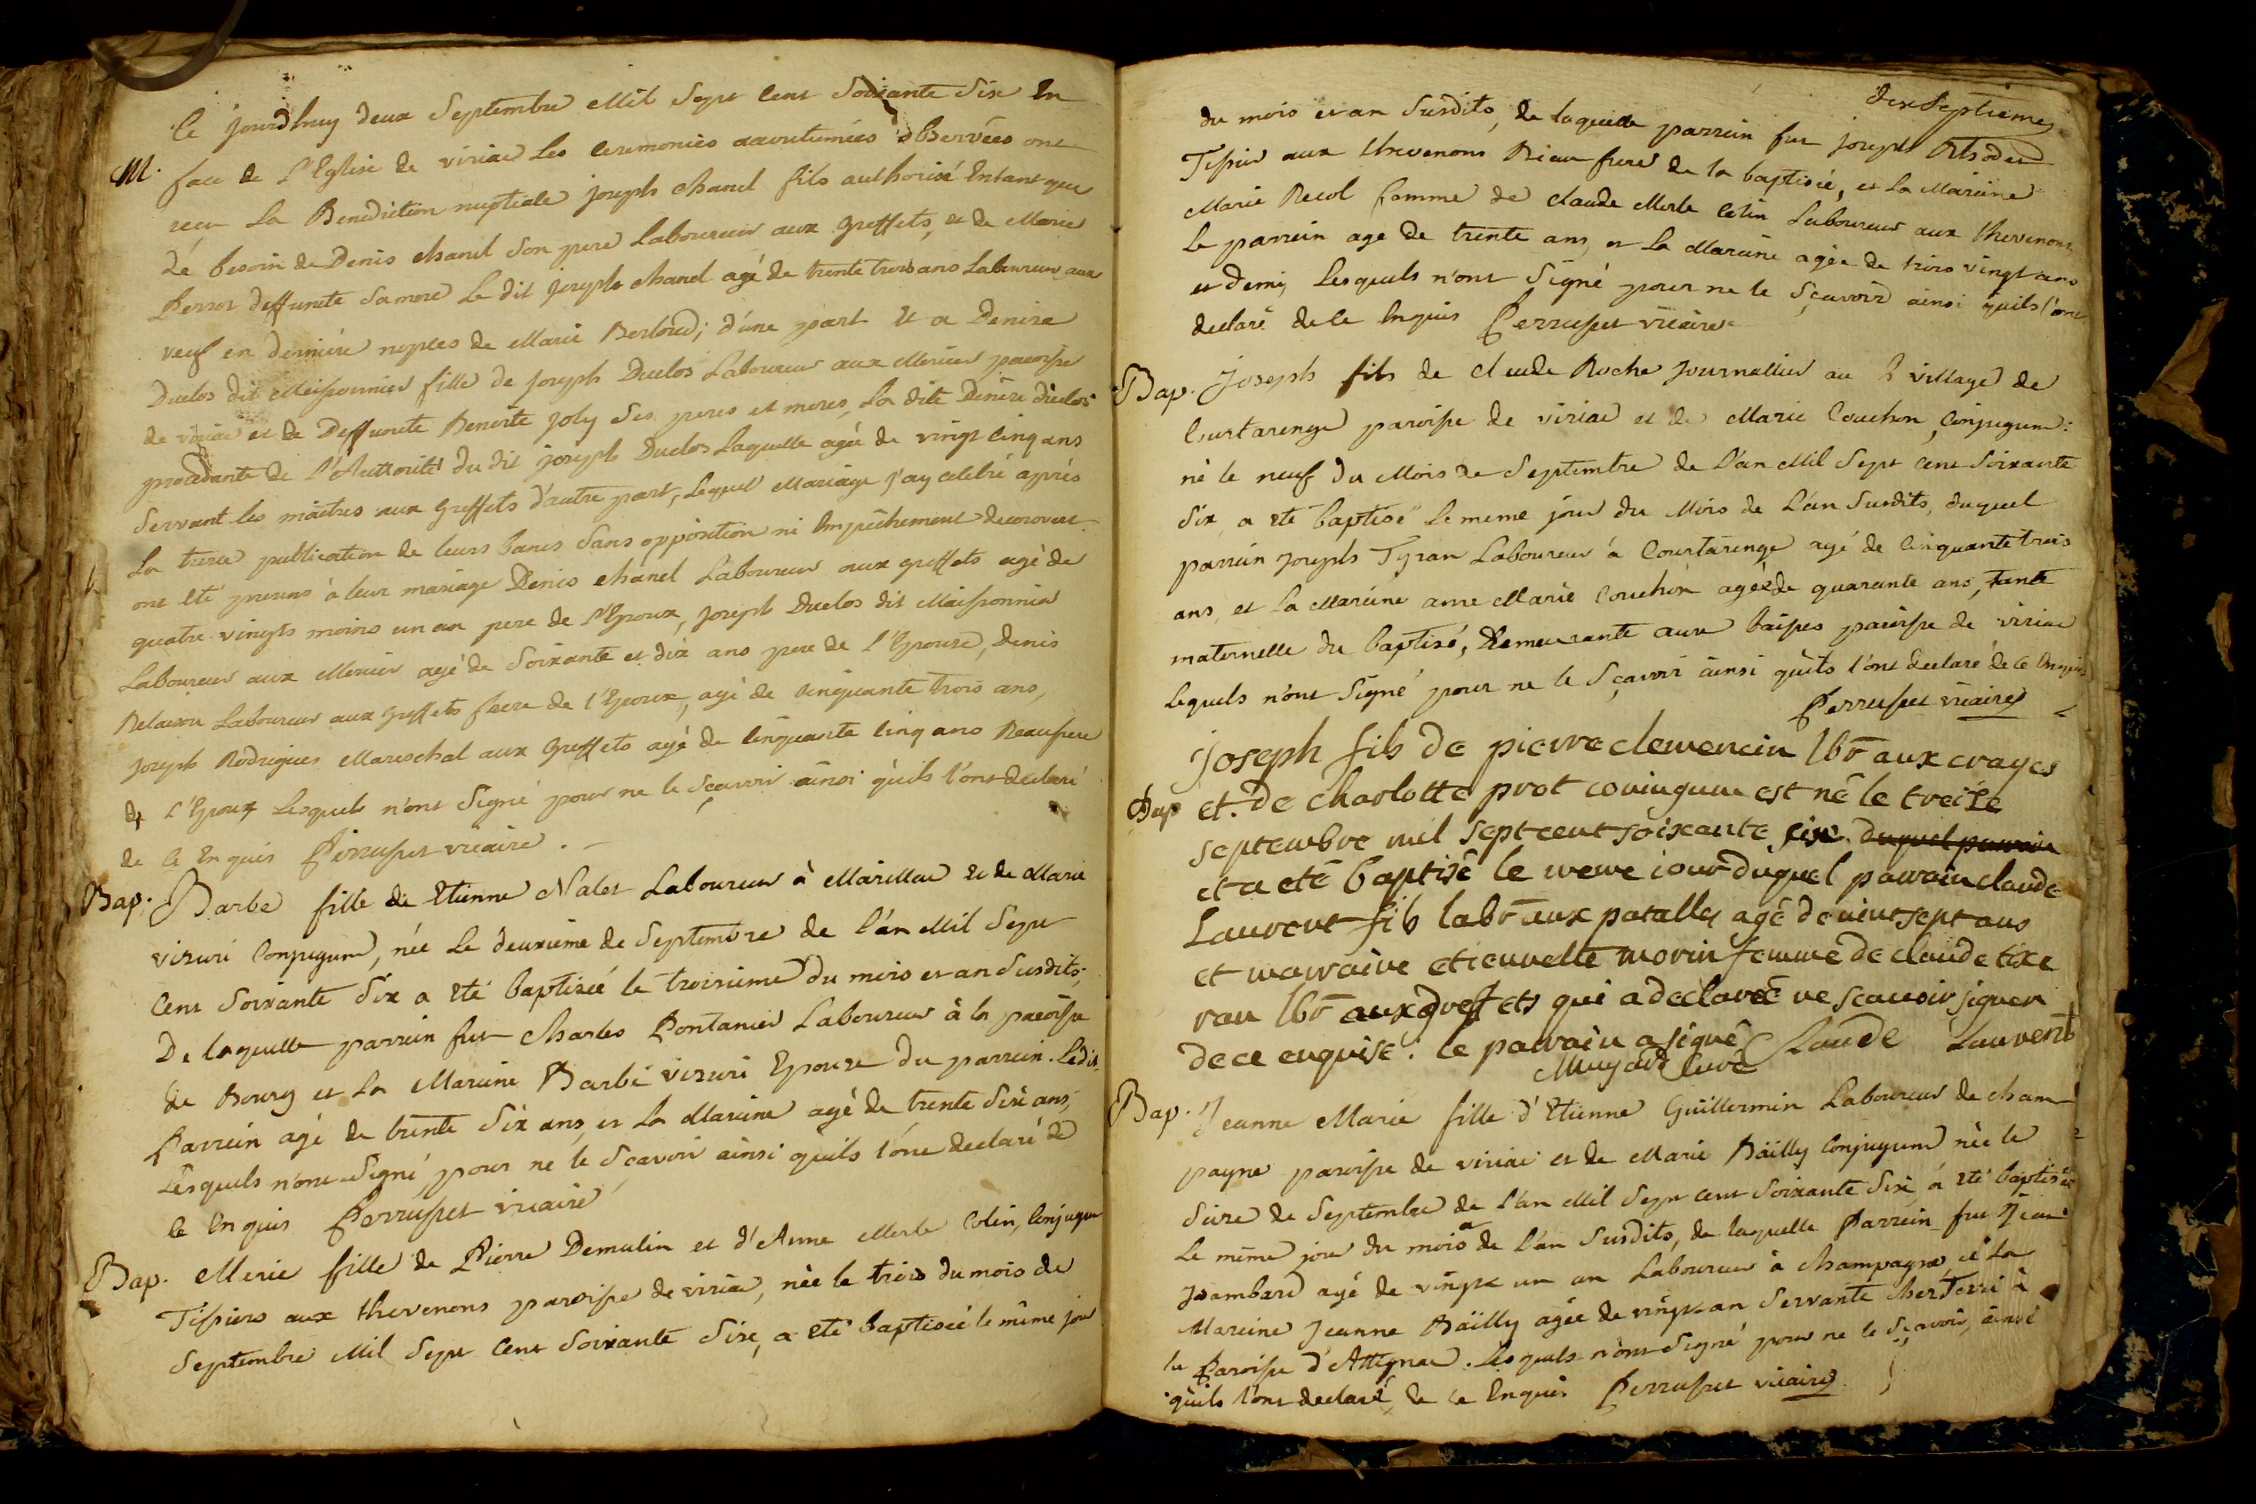 Ce jourdhuy deux Septembre Mil Sept Cent Soixante Six En
M. face de L'Eglise de viriac Les Ceremonies accoutumées observées ont
reçu La Benediction nuptiale joseph chanel fils authorisé Entant que
de besoin de Denis chanel Son pere Laboureur aux greffets, et de Marie
Perrot deffuncte Sa mere Le dit joseph chanel agé de trente trois ans Laboureur aux
veuf en derniere nopces de Marie Berloud; d'une part Et a Denise
Duclos dit Maissonnier fille de joseph Duclos Laboureur aux Merciers paroisse
de viriac et de Deffuncte Benoite joly Ses peres et meres, La dite Denise duclos
procedante de L'Authorité du dit joseph Duclos Laquelle agée de vingt Cinq ans
Servant les maîtres aux greffets d'autre part, Lequel Mariage j'ay celebré après
La publication de leurs bancs Sans opposition ni Empêchement decouvert
ont été presens à leur mariage Denis chanel Laboureur aux greffets agé de
quatre vingts moins un an pere de l'Epoux, joseph Duclos dit Maissonnier
Laboureur aux Mercier agé de Soixante et dix ans pere de L'Epouse, Denis
Laboureur aux greffets frere de l'Epoux, agé de Cinquante trois ans,
joseph Rodrigues Mareschal aux greffets agé de Cinquante Cinq ans Beaufrere
de L'Epoux Lesquels n'ont Signé pour ne le Sçavoir ainsi qu'ils l'ont declaré
de Ce Enquis Perrusset vicaire.
Bap. Barbe fille de Etienne Nalet Laboureur à Marillac et de Marie
vizuri Conjugum, née Le deuxieme de Septembre de L'an Mil Sept
Cent Soixante Six a été baptisée le troisieme du mois et an Susdits,
De laquelle parrein fut Charles Pontanier Laboureur à la paroisse
de Bourg et La Mareine Barbe vizuri Epouse du parrein. Ledit
Parrein agé de trente Six ans, et La Mareine agé de trente Six ans,
Lesquels n'ont Signé pour ne le Sçavoir ainsi qu'ils l'ont declaré de
Ce Enquis Perrusset vicaire
Bap. Marie fille de Pierre Demulin et d'Anne Merle Colin, Conjugum
Tissiers aux thevenons paroisse de viriac, née le trois du mois de
Septembre Mil Sept Cent Soixante Six, a été baptisée le même jour
dix Septieme
du mois et an Susdits, de laquelle parrein fut joseph
Tissier aux thevenons Beau frere de la baptisée, et La Mareine
Marie Recol femme de claude Merle Colin Laboureur aux thevenons
Le parrein agé de trente ans, et La Mareine agée de trois vingt ans
et demi, Lesquels n'ont Signé pour ne le Sçavoir ainsi qu'ils l'ont
declaré de Ce Enquis Perrusset vicaire
Bap. Joseph fils de claude Roche Journallier au village de
Courtarenge paroisse de viriac et de Marie Couchon, Conjugum:
né le neuf du Mois de Septembre de L'an Mil Sept Cent Soixante
Six a été baptisé Le meme jour du Mois de L'an Susdits, duquel
parrein joseph Tyran Laboureur à Courtarenge agé de Cinquante trois
ans, et La Mareine anne Marie Couchon agée de quarante ans, tante
maternelle du baptisé, Demeurante aux baisses paroisse de viriac
Lequels n'ont Signé pour ne le Sçavoir ainsi qu'ils l'ont declaré de Ce Enquis
Perrusset vicaire
Joseph fils de pierre clemencin lbr aux crayes
Bap et de charlotte prot coniugum est né le treize
septembre mil sept cent soixante six duquel parrain
et a eté baptisé le meme iour duquel parrain claude
Laurent fils labr aux patalles agé de vint sept ans
et marraine etiennette morin femme de claude tixe
ran lbr aux greffets qui a declaré ne scauoir signer
de ce enquise. le parrain a signé Claude Laurent
Muyard Curé
Bap. Jeanne Marie fille d'Etienne Guillermin Laboureur de cham
payne paroisse de viriac et de Marie Bäilly Conjugum née le
Seize de Septembre de L'an Mil Sept Cent Soixante Six, a été baptisée
Le même jour du mois de L'an Susdits, de laquelle Parrein fut Jean
Joambard agé de vingt un an Laboureur à champagne, et La
Mareine Jeanne Bäilly agée de vingt an Servante à
la Paroisse d'Attignac. Lesquels n'ont Signé pour ne le Sçavoir, ainsi
qu'ils l'ont declaré, de Ce Enquis Perrusset vicaire